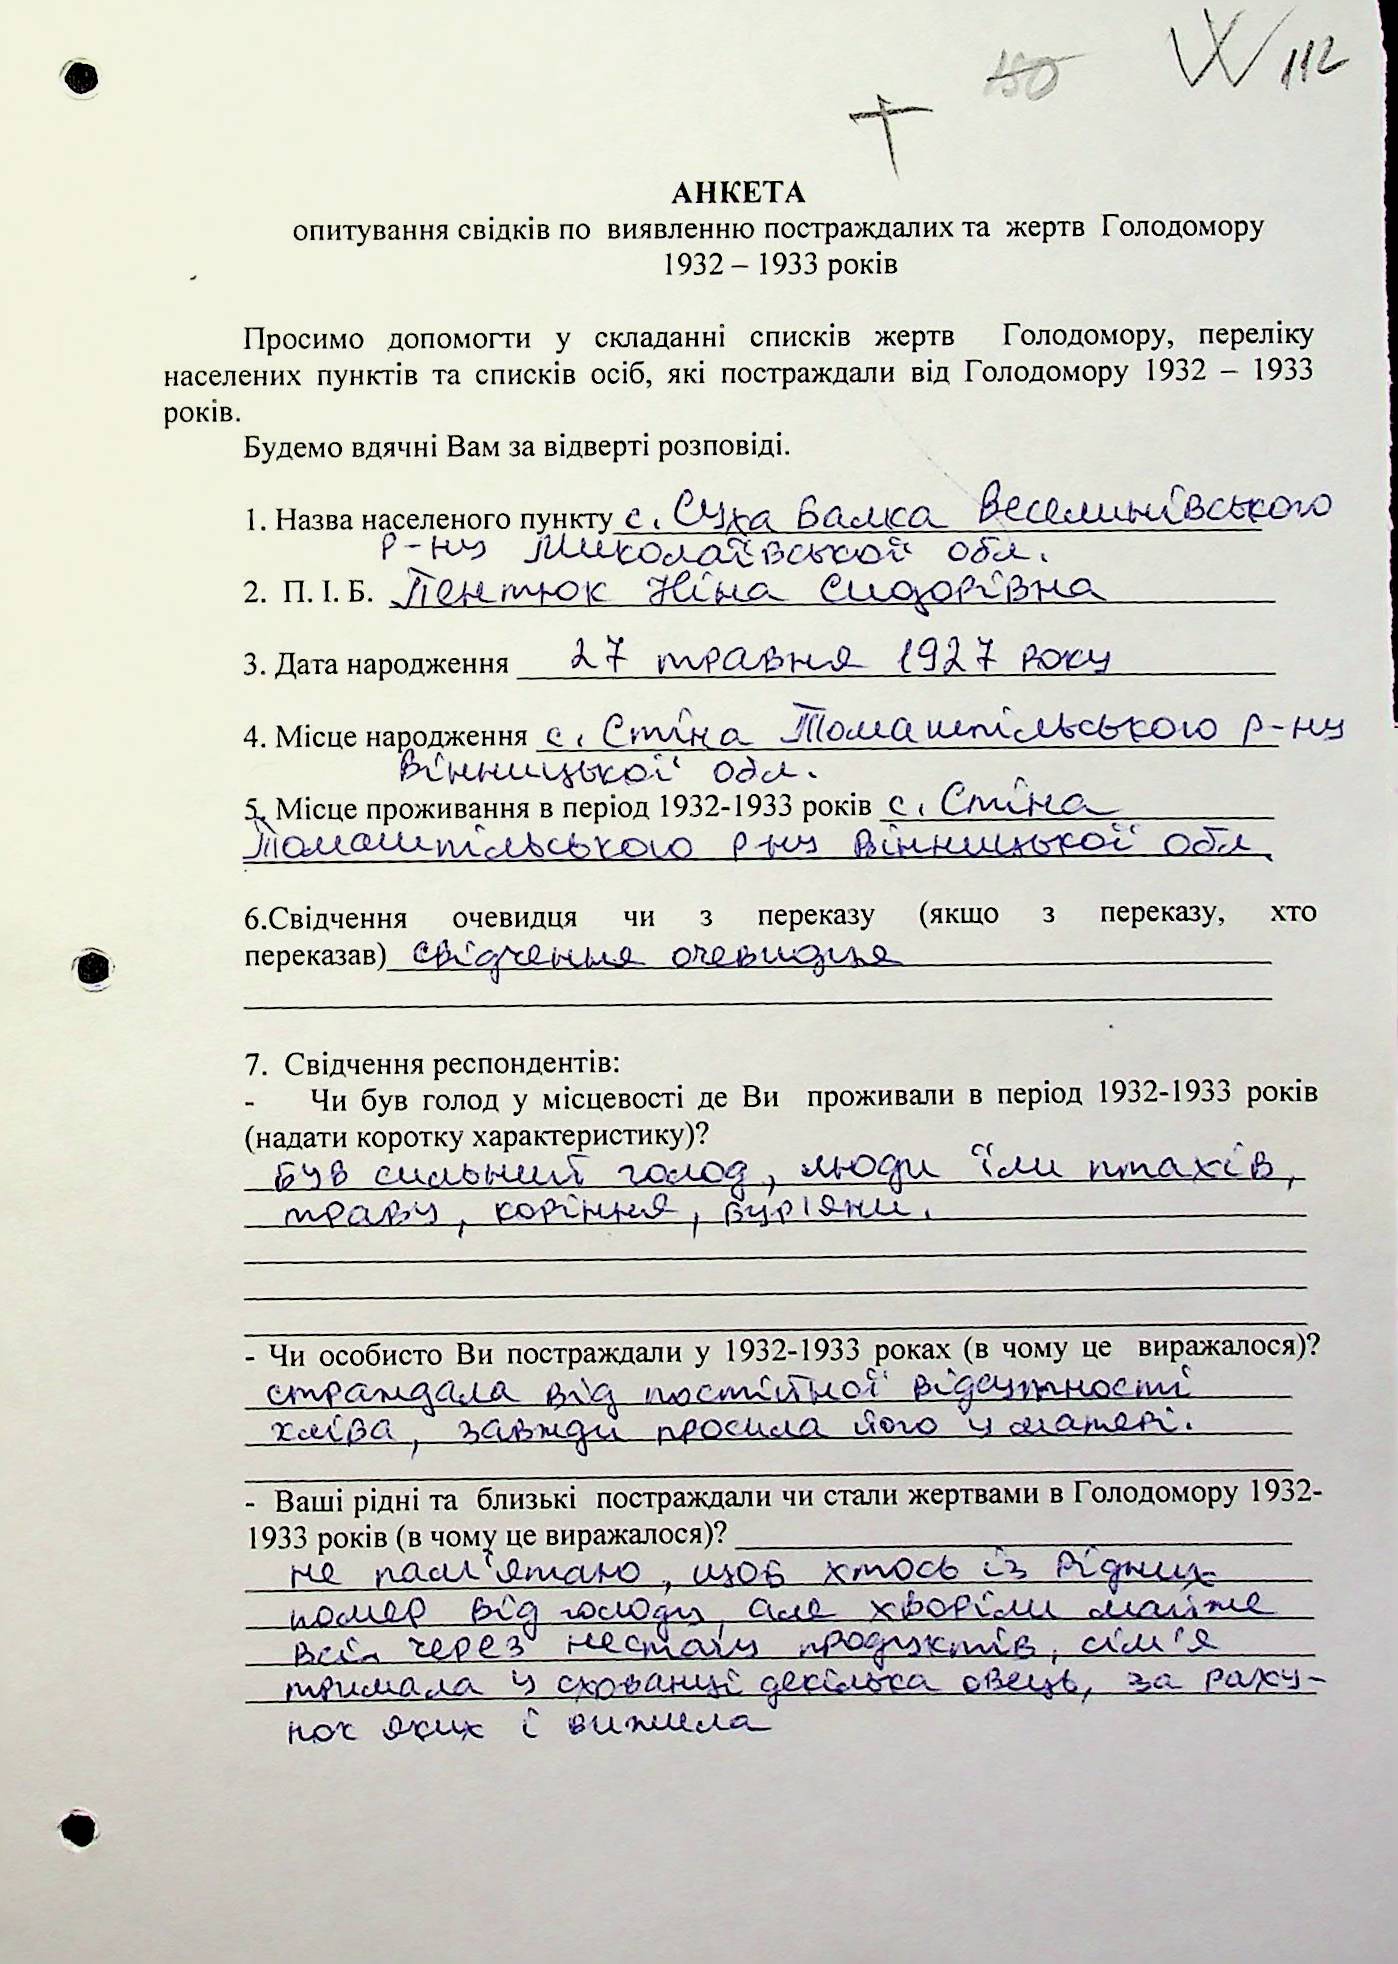 150
112
АНКЕТА
опитування свідків по виявленню постраждалих та жертв Голодомору
1932 – 1933 років
Просимо допомогти у складанні списків жертв Голодомору, переліку
населених пунктів та списків осіб, які постраждали від Голодомору 1932 – 1933
років.
Будемо вдячні Вам за відверті розповіді.
1. Назва населеного пункту с. Суха Балка Веселинівського
р-ну Миколаївської обл.
2. П. І. Б. Пентюк Ніна Сидорівна
3. Дата народження 27 травня 1927 року
4. Місце народження с. Стіна Томашпільського р-ну
Вінницької обл.
5. Місце проживання в період 1932-1933 років с. Стіна
Томашпільського р-ну Вінницької обл.
6.Свідчення очевидця чи з переказу (якщо з переказу, хто
переказав) свідчення очевидця
7. Свідчення респондентів:
- Чи був голод у місцевості де Ви проживали в період 1932-1933 років
(надати коротку характеристику)?
був сильний голод, люди їли птахів,
траву, коріння, буріяни.
- Чи особисто Ви постраждали у 1932-1933 роках (в чому це виражалося)?
страждала від постійної відсутності
хліба, завжди просила його у матері.
- Ваші рідні та близькі постраждали чи стали жертвами в Голодомору 1932-
1933 років (в чому це виражалося)?
не пам'ятаю, щоб хтось із рідних
помер від голоду, але хворіли майже
всі через нестачу продуктів, сім'я
тримала у схованці декілька овець, за раху-
нок яких і вижила